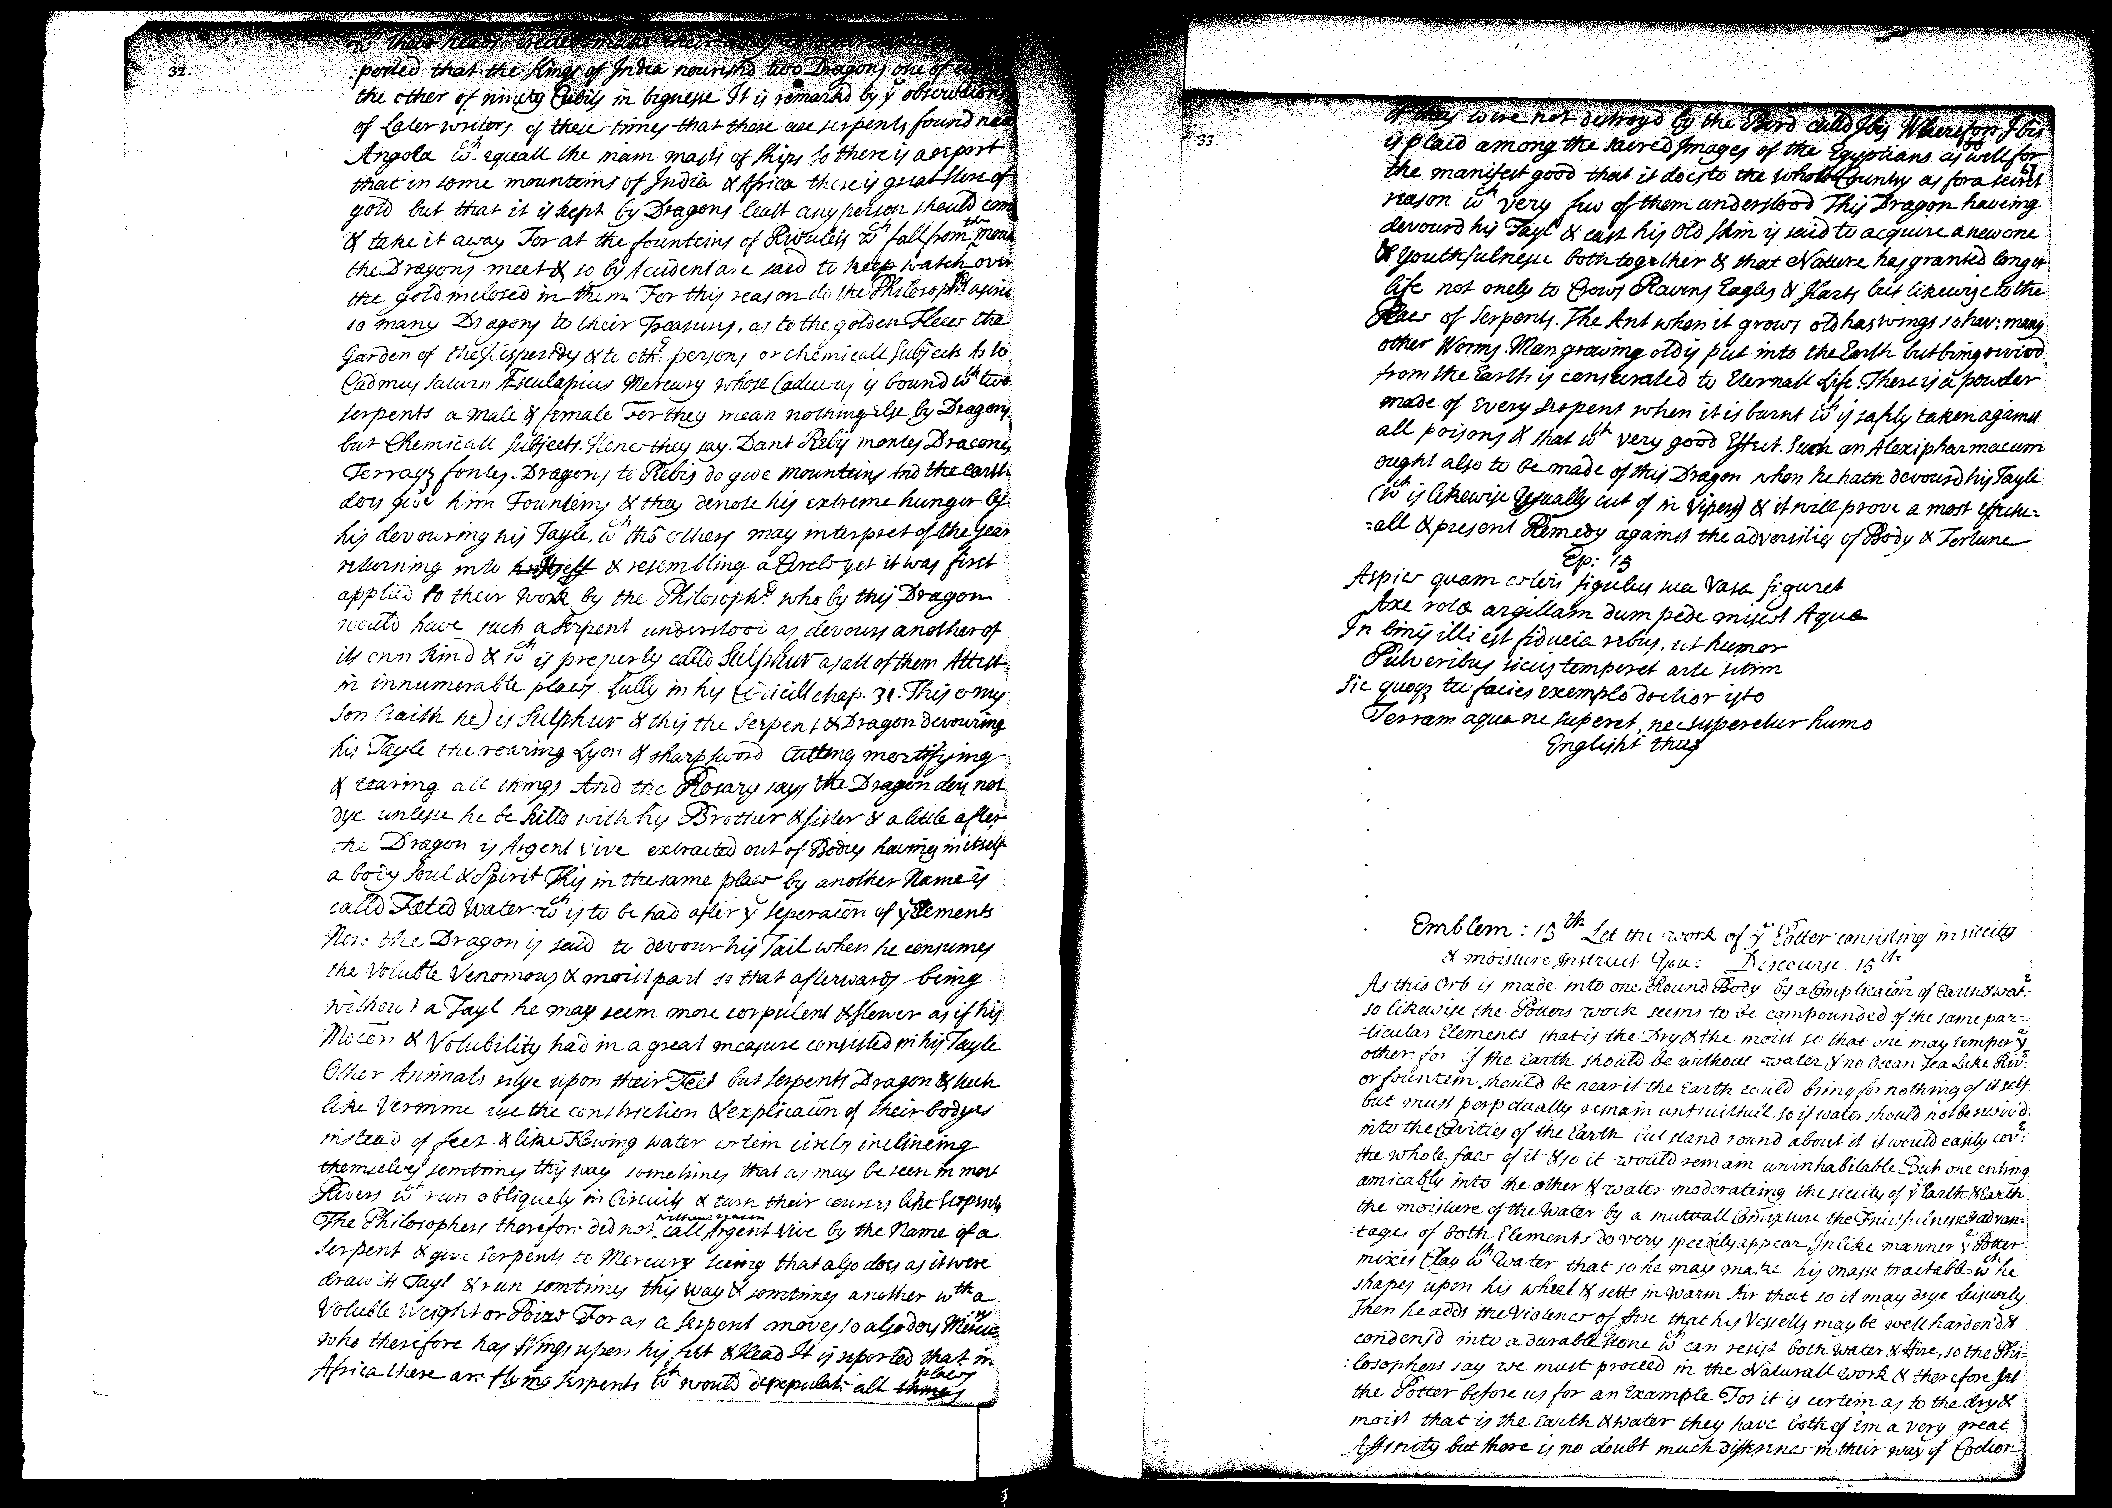 32.
ported that the Kings of India nourishd two Dragons one of
the other of ninety Cubits in bignesse It is remarkd by yͤ observations
of Later writers of these times that there are serpents found near
Angola wᶜʰ equall the main masts of ships So there is a report
that in some mounteins of India & Africa there is great store of
gold but that it is kept by Dragons least any person should com
& take it away For at the founteins of Rivulets wᶜʰ fall from thᵉ mount
the Dragons meet & so by Accident are said to keep watch over
the gold inclosed in them For this reason do the Philosophʳˢ assine
so many Dragons to their Treasures, as to the golden Fleece the
Garden of the Hesperides & to othʳ persons or chemicall Subjects As to
Cadmus Saturn Æsculapius Mercury whose Caduceus is bound wᵗʰ two
serpents a male & female For they mean nothing else by Dragons
but Chemicall Subjects. Hence they say. Dant Rebis montes Dracones
Terraqz fontes. Dragons to Rebis do give mounteins And the earth
does give him Founteins & they denote his extreme hunger by
his devouring his Tayle, wᶜʰ thô others may interpret of the year
returning into himself & resembling a Circle yet it was first
applied to their Work by the Philosophʳˢ who by this Dragon
would have such a serpent understood as devours another of
its own kind & wᶜʰ is properly calld Sulphur as all of them Attest
in innumerable places. Lully in his Codicill chap. 31. This o my
Son (saith he) is Sulphur & this the Serpent & Dragon devouring
his Tayle the roaring Lyon & sharp sword Cutting mortifying
& tearing all things And the Rosary says the Dragon does not
dye unlesse he be killd with his Brother & sister & a little after
the Dragon is Argent Vive extracted out of Bodies having in itself
a body Soul & Spirit This in the same place by another Name is
calld Fœted Water wᶜʰ is to be had after yͤ seperaōn of yͤ Elements
Now the Dragon is said to devour his Tail when he consumes
the Voluble Venomous & moist part so that afterwards being
without a Tayl he may seem more corpulent & slower as if his
Mocōn & Volubility had in a great measure consisted in his Tayle
Other Animals relye upon their Feet but serpents Dragon & such
like Vermine use the constriction & explicaōn of their bodyes
instead of feet & like Flowing water certein circles inclineing
themselves somtimes this way somtimes that as may be seen in most
Rivers wᶜʰ run obliquely in Circuits & turn their courses like Serpents
The Philosophers therefore did not without reason call Argent Vive by the Name of a
Serpent & give serpents to Mercury seeing that also does as it were
draw its Tayl & run somtimes this way & somtimes another wᵗʰ a
Voluble Weight or Poize For as a Serpent moves so also does Mercury
who therefore has Wings upon his feet & Head It is reported that in
Africa there are flying serpents wᶜʰ would depopulate all things places
33.
if they were not destroyd by the Bird calld Ibis Wherefore Ibis
is placd among the sacred Images of the Egyptians as well for
the manifest good that it does to the whole Country as for a secret
reason wᶜʰ very few of them understood This Dragon having
devourd his Tayl & cast his Old skin is said to acquire a new one
& Youthfulnesse both together & that Nature has granted longer
life not onely to Crows Ravens Eagles & Harts but likewise to the
Race of Serpents. The Ant when it grows old has wings so have many
other Worms. Man growing old is put into the Earth but being revivd
from the Earth is consecrated to Eternall Life. There is a powder
made of Every Serpent when it is burnt wᶜʰ is safely taken against
all poisons & that wᵗʰ very good Effect. Such an Alexipharmacum
ought also to be made of this Dragon when he hath devourd his Tayle
(wᶜʰ is likewise Usually cut of in Vipers) & it will prove a most effectu=
=all & present Remedy against the adversities of Body & Fortune
Ep: 15
Aspice quam celeris figulus sua Vasa figuret
Axe rotæ argillam dum pede miscet Aquæ
In binis illi est fiducia rebus, ut humor
Pulveribus siccis temperet arte sitim
Sic quoqz tu facies exemplo doctior isto
Terram aqua ne superet, nec superetur humo
Englisht thus
Emblem: 15ᵗʰ Let the work of yͤ Potter consisting in siccity
& moisture Instruct You: Discourse. 15ᵗʰ
As this Orb is made into one Round Body by a Complicaōn of Earth & watʳ:
so likewise the Potters work seems to be compounded of the same par=
=ticular Elements that is the Dry & the moist so that one may temper yͤ
other for if the Earth should be without water & no Ocean Sea Lake Rivʳ:
or fountein should be near it the Earth could bring for nothing of it self
but must perpetually remain unfruitfull so if water should not be receivd
into the Cavities of the Earth but stand round about it it would easily covʳ:
the whole face of it & so it would remain uninhabitable But one entring
amicably into the other & water moderateing the siccity of yͤ Earth & Earth
the moisture of the Water by a mutuall Comixture the Fruitfulnesse & advan=
=tages of both Elements do very speedily appear In like manner yͤ Potter
mixes Clay wᵗʰ Water that so he may make his masse tractable wᶜʰ he
shapes upon his wheel & setts in warm Air that so it may drye leisurely
Then he adds the Violence of fire that his Vessells may be well hardend &
condensd into a durable stone wᶜʰ can resist both water & fire, so the Phi=
=losophers say we must proceed in the Naturall work & therefore set
the Potter before us for an Example For it is certein as to the dry &
moist that is the Earth & water they have both of em a very great
Affinity but there is no doubt much difference in their way of Coction